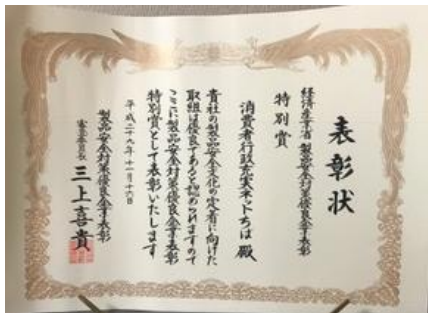 表彰状
経済産業省 製品安全対策優良企業表彰
特別賞
消費者行政充実ネットちば 殿
貴社の製品安全文化の定着に向けた
取組は優良であると認められますので
ここに製品安全対策優良企業表彰
特別賞として表彰いたします
平成二十九年十一月十六日
製品安全対策優良企業表彰
審査委員長 三上喜貴